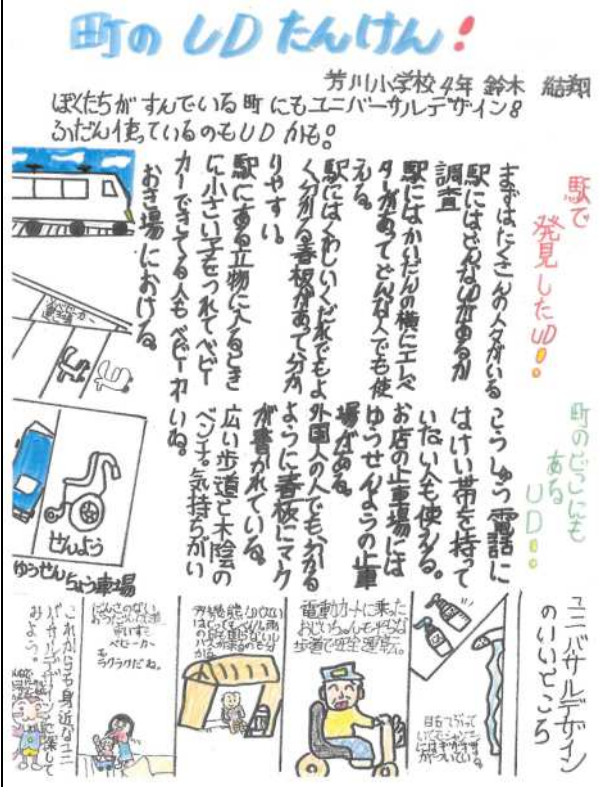 町のUDたんけん!
芳川小学校4年 鈴木 結翔
ぼくたちがすんでいる町にもユニバーサルデザイン8
ふだん使っているのもUDかも。
駅で
発見したUD!!
まずはたくさんの人々がいる
駅にはどんなUDがあるか
調査
駅にはかいだんの横にエレベ
ターがあってどんな人でも使
える。
駅にはくわしいくだれでもよ
く分かる看板があって分か
りやすい。
駅にある立物に入るとき
に小さい子をつれてベビー
カーできてる人もベビーカー
おき場における。
町のどこにも
ある
UD!!
こうしゅう電話に
はけい帯を持って
いない人も使える。
お店の止車場には
ゆうせんようの止車
場がある。
外国人の人でも分かる
ように看板にマーク
が書かれている。
広い歩道と木陰の
ベンチ。気持ちがい
いね。
せんよう
ゆうせんちょう車場
ユニバサルデザイン
のいいところ
電車カートに乗った
おじいちゃんも平らな
歩道で安全運転。
ベビーカー
も
ラクラクだね。
これからも身近なユニ
バサルデザインを探して
みよう。